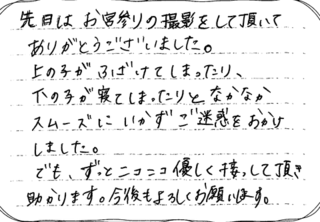 先日は お宮参りの撮影をして頂いて
ありがとうございました。
上の子が ふざけてしまったり、
下の子が寝てしまったりと なかなか
スムーズに いかず ご迷惑をおかけ
しました。
でも、ずっとニコニコ優しく接っして頂き
助かります。今後もよろしくお願います。